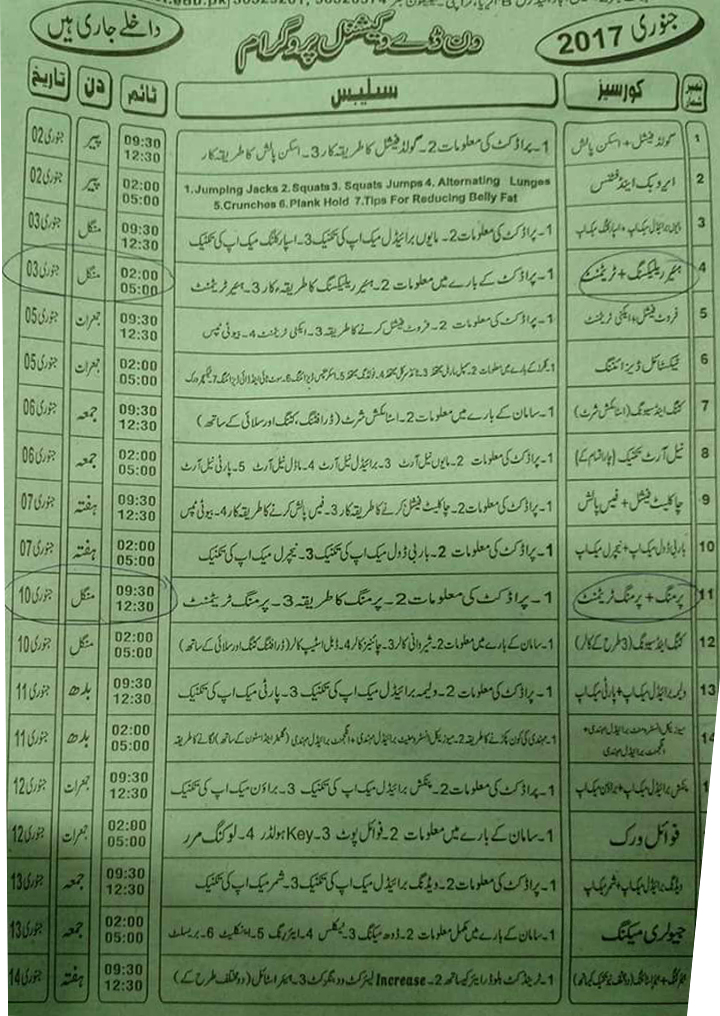 داخلے جاری ہیں
ون ڈے ووکیشنل پروگرام
جنوری 2017
نمبر شمار کورسیز سلیبس ٹائم دن تاریخ
1 گولڈ فیشل + اسکن پالش 1۔ پراڈکٹ کی معلومات 2۔ گولڈ فیشل کا طریقہ کار 3۔ اسکن پالش کا طریقہ کار 09:30 12:30 پیر 02 جنوری
2 ایروبک اینڈ فٹنس 1.Jumping Jacks 2.Squats 3. Squats Jumps 4. Alternating Lunges
5.Crunches 6.Plank Hold 7.Tips For Reducing Belly Fat 02:00 05:00 پیر 02 جنوری
3 1۔ پراڈکٹ کی معلومات 2۔ مایوں برائیڈل میک اپ کی تکنیک 3۔ اسپارکلنگ میک اپ کی تکنیک 09:30 12:30 منگل 03 جنوری
4 ہیئر ریلیکسنگ + ٹریٹمنٹ 1۔ پراڈکٹ کے بارے میں معلومات 2۔ ہیئر ریلیکسنگ کا طریقہء کار 3۔ ہیئر ٹریٹمنٹ 02:00 05:00 منگل 03 جنوری
5 فروٹ فیشل + ایکنی ٹریٹمنٹ 1۔ پراڈکٹ کی معلومات 2۔ فروٹ فیشل کرنے کا طریقہ 3۔ ایکنی ٹریٹمنٹ 4۔ بیوٹی ٹپس 09:30 12:30 جمعرات 05 جنوری
6 ٹیکسٹائل ڈیزائننگ 02:00 05:00 جمعرات 05 جنوری
7 کٹنگ اینڈ سیونگ (اسٹائلش شرٹ) 1۔ سامان کے بارے میں معلومات 2۔ اسٹائلش شرٹ (ڈرافٹنگ، کٹنگ اور سلائی کے ساتھ) 09:30 12:30 جمعہ 06 جنوری
8 نیل آرٹ تکنیک (چار اقسام کے) 1۔ پراڈکٹ کی معلومات 2۔ مایوں نیل آرٹ 3۔ برائیڈل نیل آرٹ 4۔ ماڈل نیل آرٹ 5۔ پارٹی نیل آرٹ 02:00 05:00 جمعہ 06 جنوری
9 چاکلیٹ فیشل + فیس پالش 1۔ پراڈکٹ کی معلومات 2۔ چاکلیٹ فیشل کرنے کا طریقہ کار 3۔ فیس پالش کرنے کا طریقہ کار 4۔ بیوٹی ٹپس 09:30 12:30 ہفتہ 07 جنوری
10 باربی ڈول میک اپ + نیچرل میک اپ 1۔ پراڈکٹ کی معلومات 2۔ باربی ڈول میک اپ کی تکنیک 3۔ نیچرل میک اپ کی تکنیک 02:00 05:00 ہفتہ 07 جنوری
11 پرمنگ + پرمنگ ٹریٹمنٹ 1۔ پراڈکٹ کی معلومات 2۔ پرمنگ کا طریقہ 3۔ پرمنگ ٹریٹمنٹ 09:30 12:30 منگل 10 جنوری
12 کٹنگ اینڈ سیونگ (3 طرح کے کالر) 1۔ سامان کے بارے میں معلومات 2۔ شیروانی کالر 3۔ چائنیز کالر 4۔ ڈبل اسٹیپ کالر (ڈرافٹنگ کٹنگ اور سلائی کے ساتھ) 02:00 05:00 منگل 10 جنوری
13 ولیمہ برائیڈل میک اپ + پارٹی میک اپ 1۔ پراڈکٹ کی معلومات 2۔ ولیمہ برائیڈل میک اپ کی تکنیک 3۔ پارٹی میک اپ کی تکنیک 09:30 12:30 بدھ 11 جنوری
14 1۔ مہندی کی کون پکڑنے کا طریقہ 02:00 05:00 بدھ 11 جنوری
1۔ پراڈکٹ کی معلومات 2۔ برائیڈل میک اپ کی تکنیک 3۔ براؤن میک اپ کی تکنیک 09:30 12:30 جمعرات 12 جنوری
فوائل ورک 1۔ سامان کے بارے میں معلومات 2۔ فوائل پوٹ 3۔ Key ہولڈر 4۔ لوکنگ مرر 02:00 05:00 جمعرات 12 جنوری
ویڈنگ برائیڈل میک اپ + شمر میک اپ 1۔ پراڈکٹ کی معلومات 2۔ ویڈنگ برائیڈل میک اپ کی تکنیک 3۔ شمر میک اپ کی تکنیک 09:30 12:30 جمعہ 13 جنوری
جیولری میکنگ 1۔ سامان کے بارے میں مکمل معلومات 2۔ ڈوھ میکنگ 3۔ نیکلس 4۔ ایئر رنگ 5۔ اینکلیٹ 6۔ بریسلٹ 02:00 05:00 جمعہ 13 جنوری
Increase 09:30 12:30 ہفتہ 14 جنوری